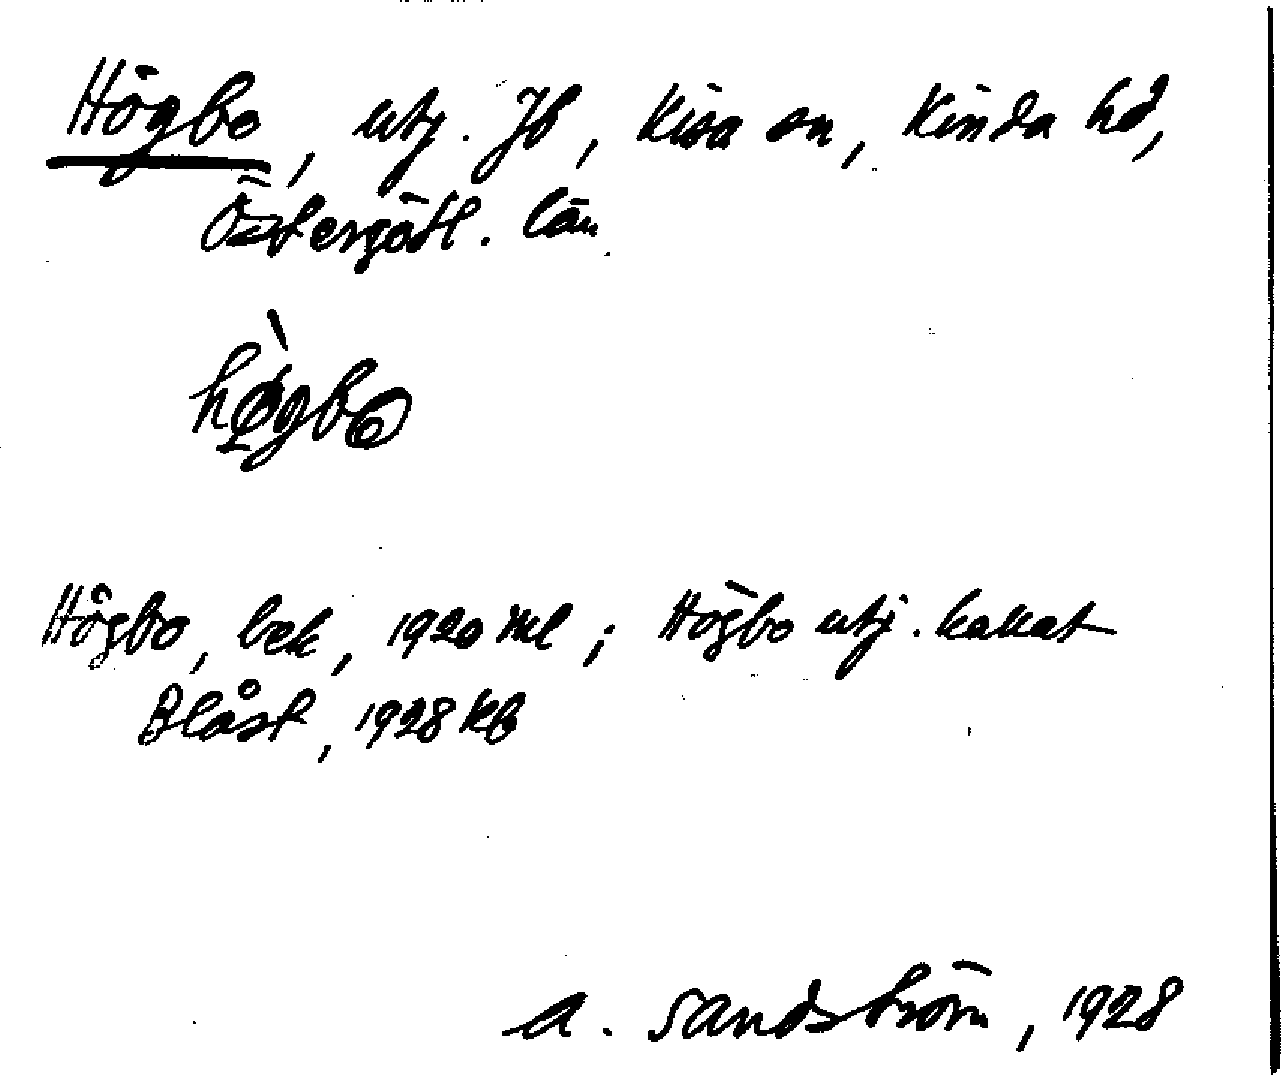 Högbo, utj. Jb, Kisa sn, Kinda hd,
Östergötl. län
hø̀gbo
Högbo, bek, 1920 Ml; Högbo utj. kallat
Blåst, 1928 Kb
A. Sandström, 1928